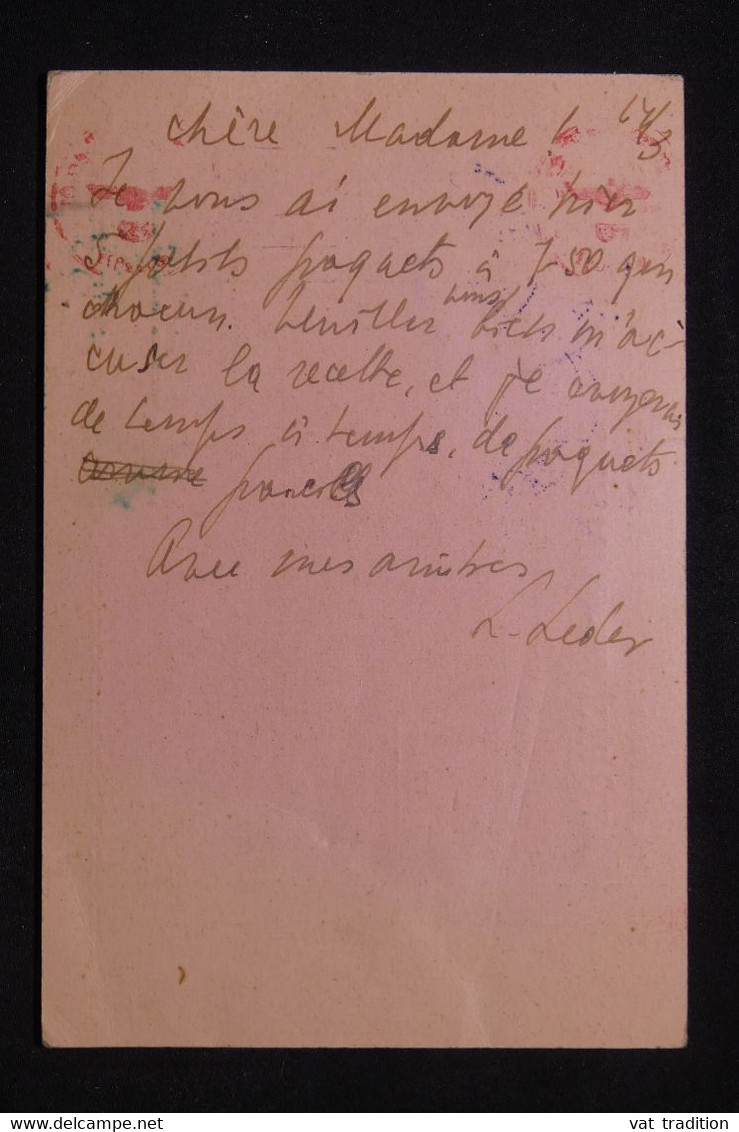 chère Madame ! 17/3
Je vous ai envoyé hier
5 petits paquets à 7-50 gr
chacun. Veuillez vous bien m'ac-
cuser la recette, et je envoyerai
de temps à temps, de paquets
pareils
Avec mes amitres
L. Leder
www.delcampe.net
vat tradition